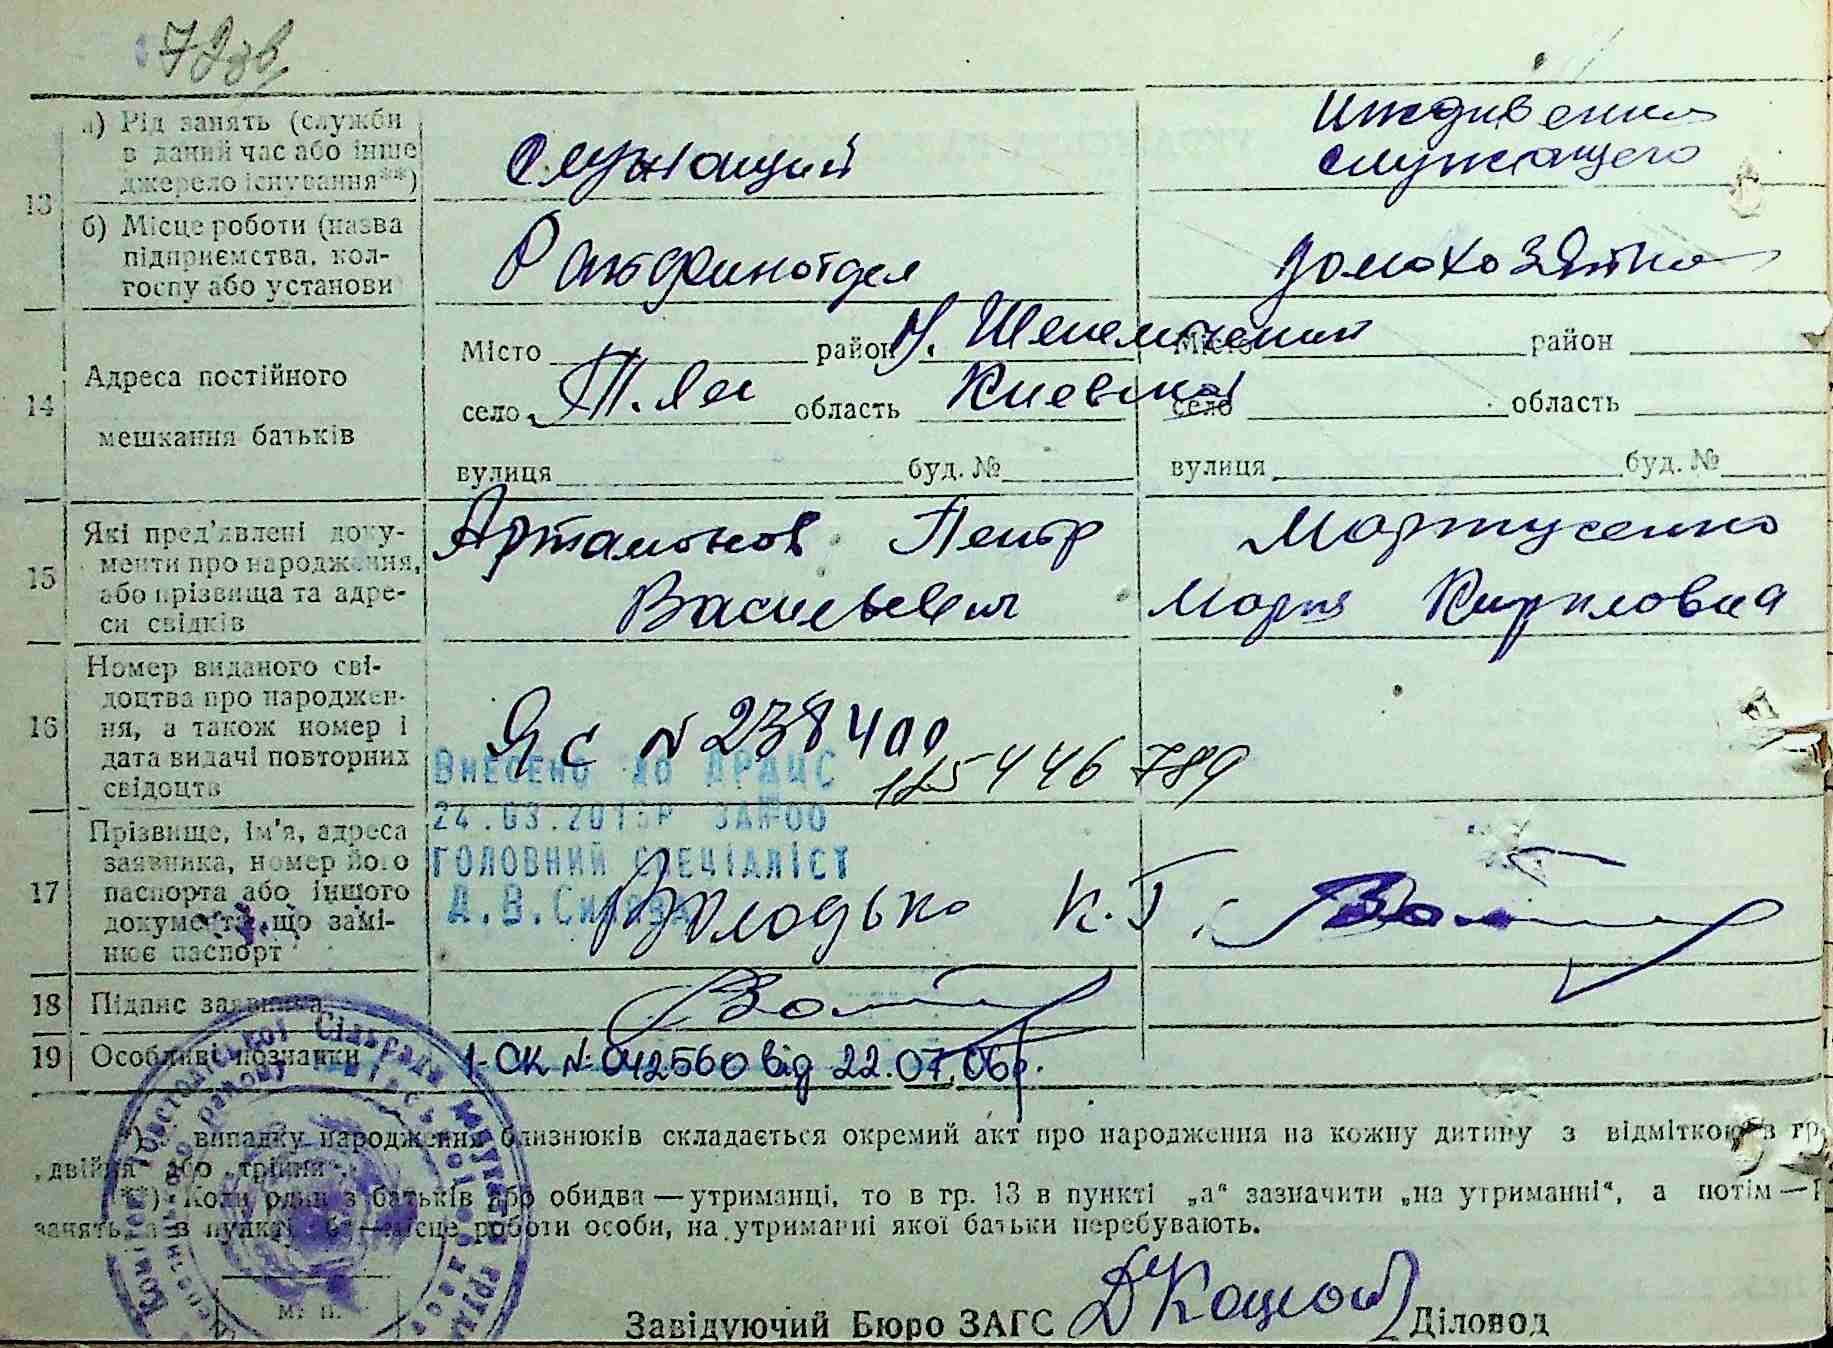 72зв.
13 а) Рід занять (служби в даний час або інше джерело існування**)
Служащий
Иждивения служащего
б) Місце роботи (назва підприємства, колгоспу або установи
Райфинотдел
домохозяйка
14 Адреса постійного мешкання батьків
Місто район
Місто район
село область Киевская
село область
вулиця буд. №
вулиця буд. №
15 Які пред'явлені документи про народження, або прізвища та адреси свідків
Артамонов Петр
Васильевич
Мартусенко
Мария Кирилловна
16 Номер виданого свідоцтва про народження, а також номер і дата видачі повторних свідоцтв
ЯС № 238400
125446789
Внесено до ДРАЦС
24.03.2015р за №00
головний спеціаліст
17 Прізвище, ім'я, адреса заявника, номер його паспорта або іншого документа, що замінює паспорт
Володько К.Г.
18 Підпис заявника
19 Особливі познаки
1-ОК № 042560 від 22.07.06р.
*) випадку народження близнюків складається окремий акт про народження на кожну дитину з відміткою в гр.
„двійня“ або „трійня“.
**) Коли один з батьків або обидва — утриманці, то в гр. 13 в пункті „а“ зазначити „на утриманні“, а потім —
занять, а в пункті — місце роботи особи, на утриманні якої батьки перебувають.
М. П.
Завідуючий Бюро ЗАГС
Діловод